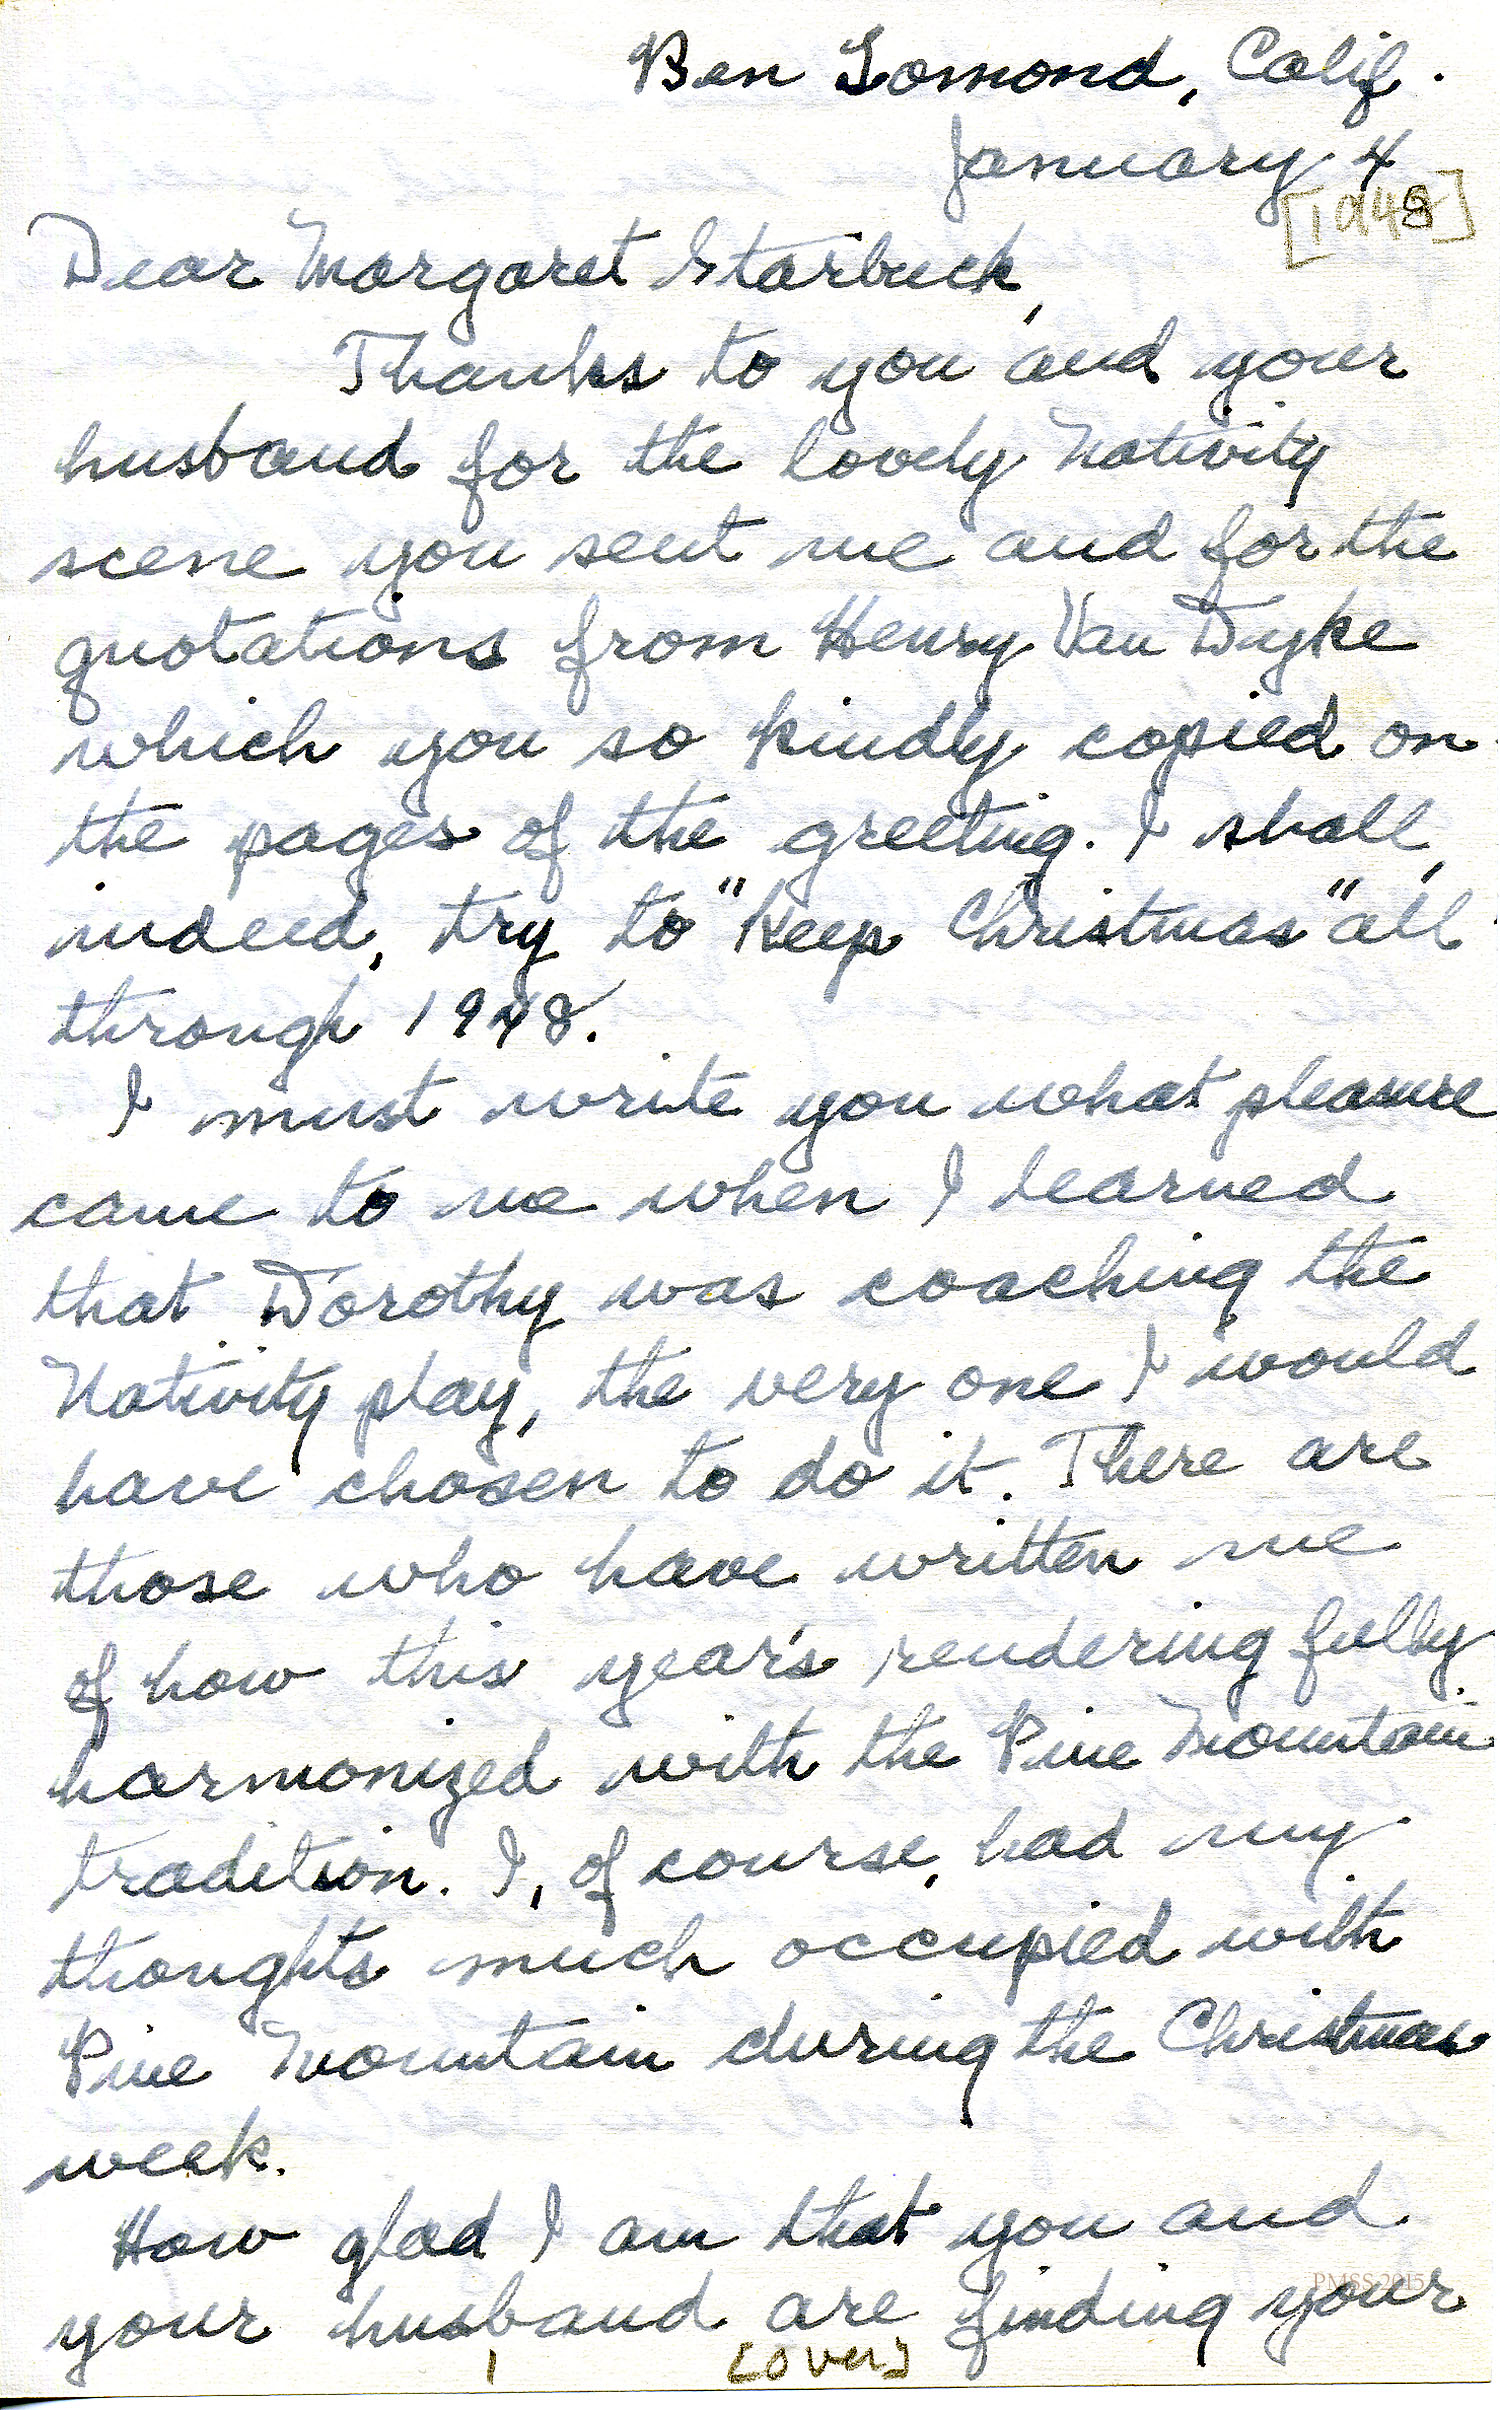 Ben Lomond, Calif.
January 4
[1948]
Dear Margaret Starbuck,
Thanks to you and your
husband for the lovely Nativity
scene you sent me and for the
quotations from Henry Van Dyke
which you so kindly copied on
the pages of the greeting. I shall,
indeed, try to "Keep Christmas" all
through 1948.
I must write you what pleasure
came to me when I learned
that Dorothy was coaching the
Nativity play, the very one I would
have chosen to do it. There are
those who have written me
of how this year's rendering fully
harmonized with the Pine Mountain
tradition. I, of course, had my
thoughts much occupied with
Pine Mountain during the Christmas
week.
How glad I am that you and
PMSS 2015
your husband are finding your
1 [over]